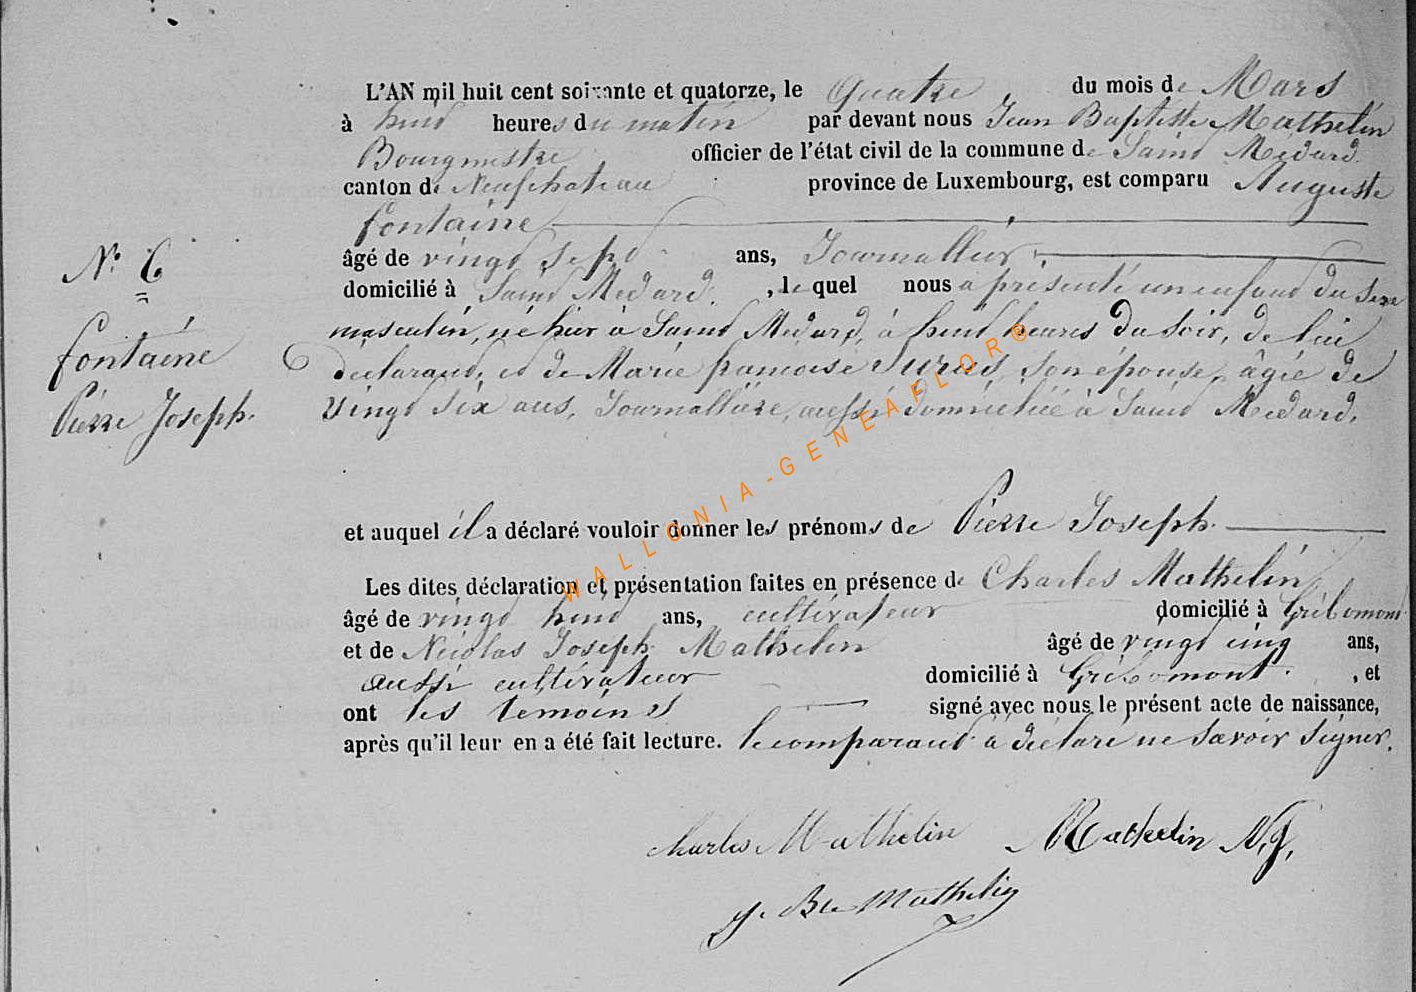 L'AN mil huit cent soixante et quatorze, le Quatre du mois de Mars
à huit heures du matin par devant nous Jean Baptiste Mathelin
Bourgmestre officier de l'état civil de la commune de Saint Médard
canton de Neufchateau province de Luxembourg, est comparu Auguste
fontaine
âgé de vingt sept ans, Journallier
N° 6
domicilié à Saint Médard, le quel nous a présenté un enfant du sexe
masculin, né hier à Saint Médard, à huit heures du soir, de lui
fontaine
déclarant, et de Marie françoise son épouse, âgée de
Pierre Joseph.
vingt six ans, Journallière, aussi domiciliée à Saint Médard.
et auquel il a déclaré vouloir donner les prénoms de Pierre Joseph.
Les dites déclaration et présentation faites en présence de Charles Mathelin
âgé de vingt huit ans, cultivateur domicilié à Gribomont
et de Nicolas Joseph Mathelin âgé de vingt cinq ans,
aussi cultivateur domicilié à Gribomont, et
ont les temoins signé avec nous le présent acte de naissance,
après qu'il leur en a été fait lecture. le comparant à déclaré ne savoir signer.
Charles Mathelin Mathelin N. J.
J. Bte Mathelin
WALLONIA-GENEAFLOR©